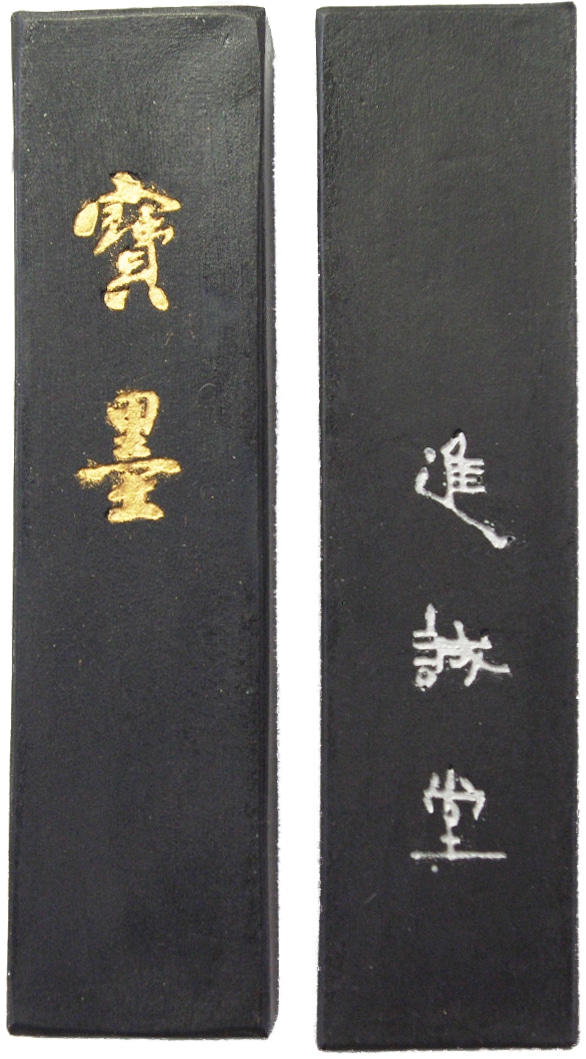 寶墨
進誠堂